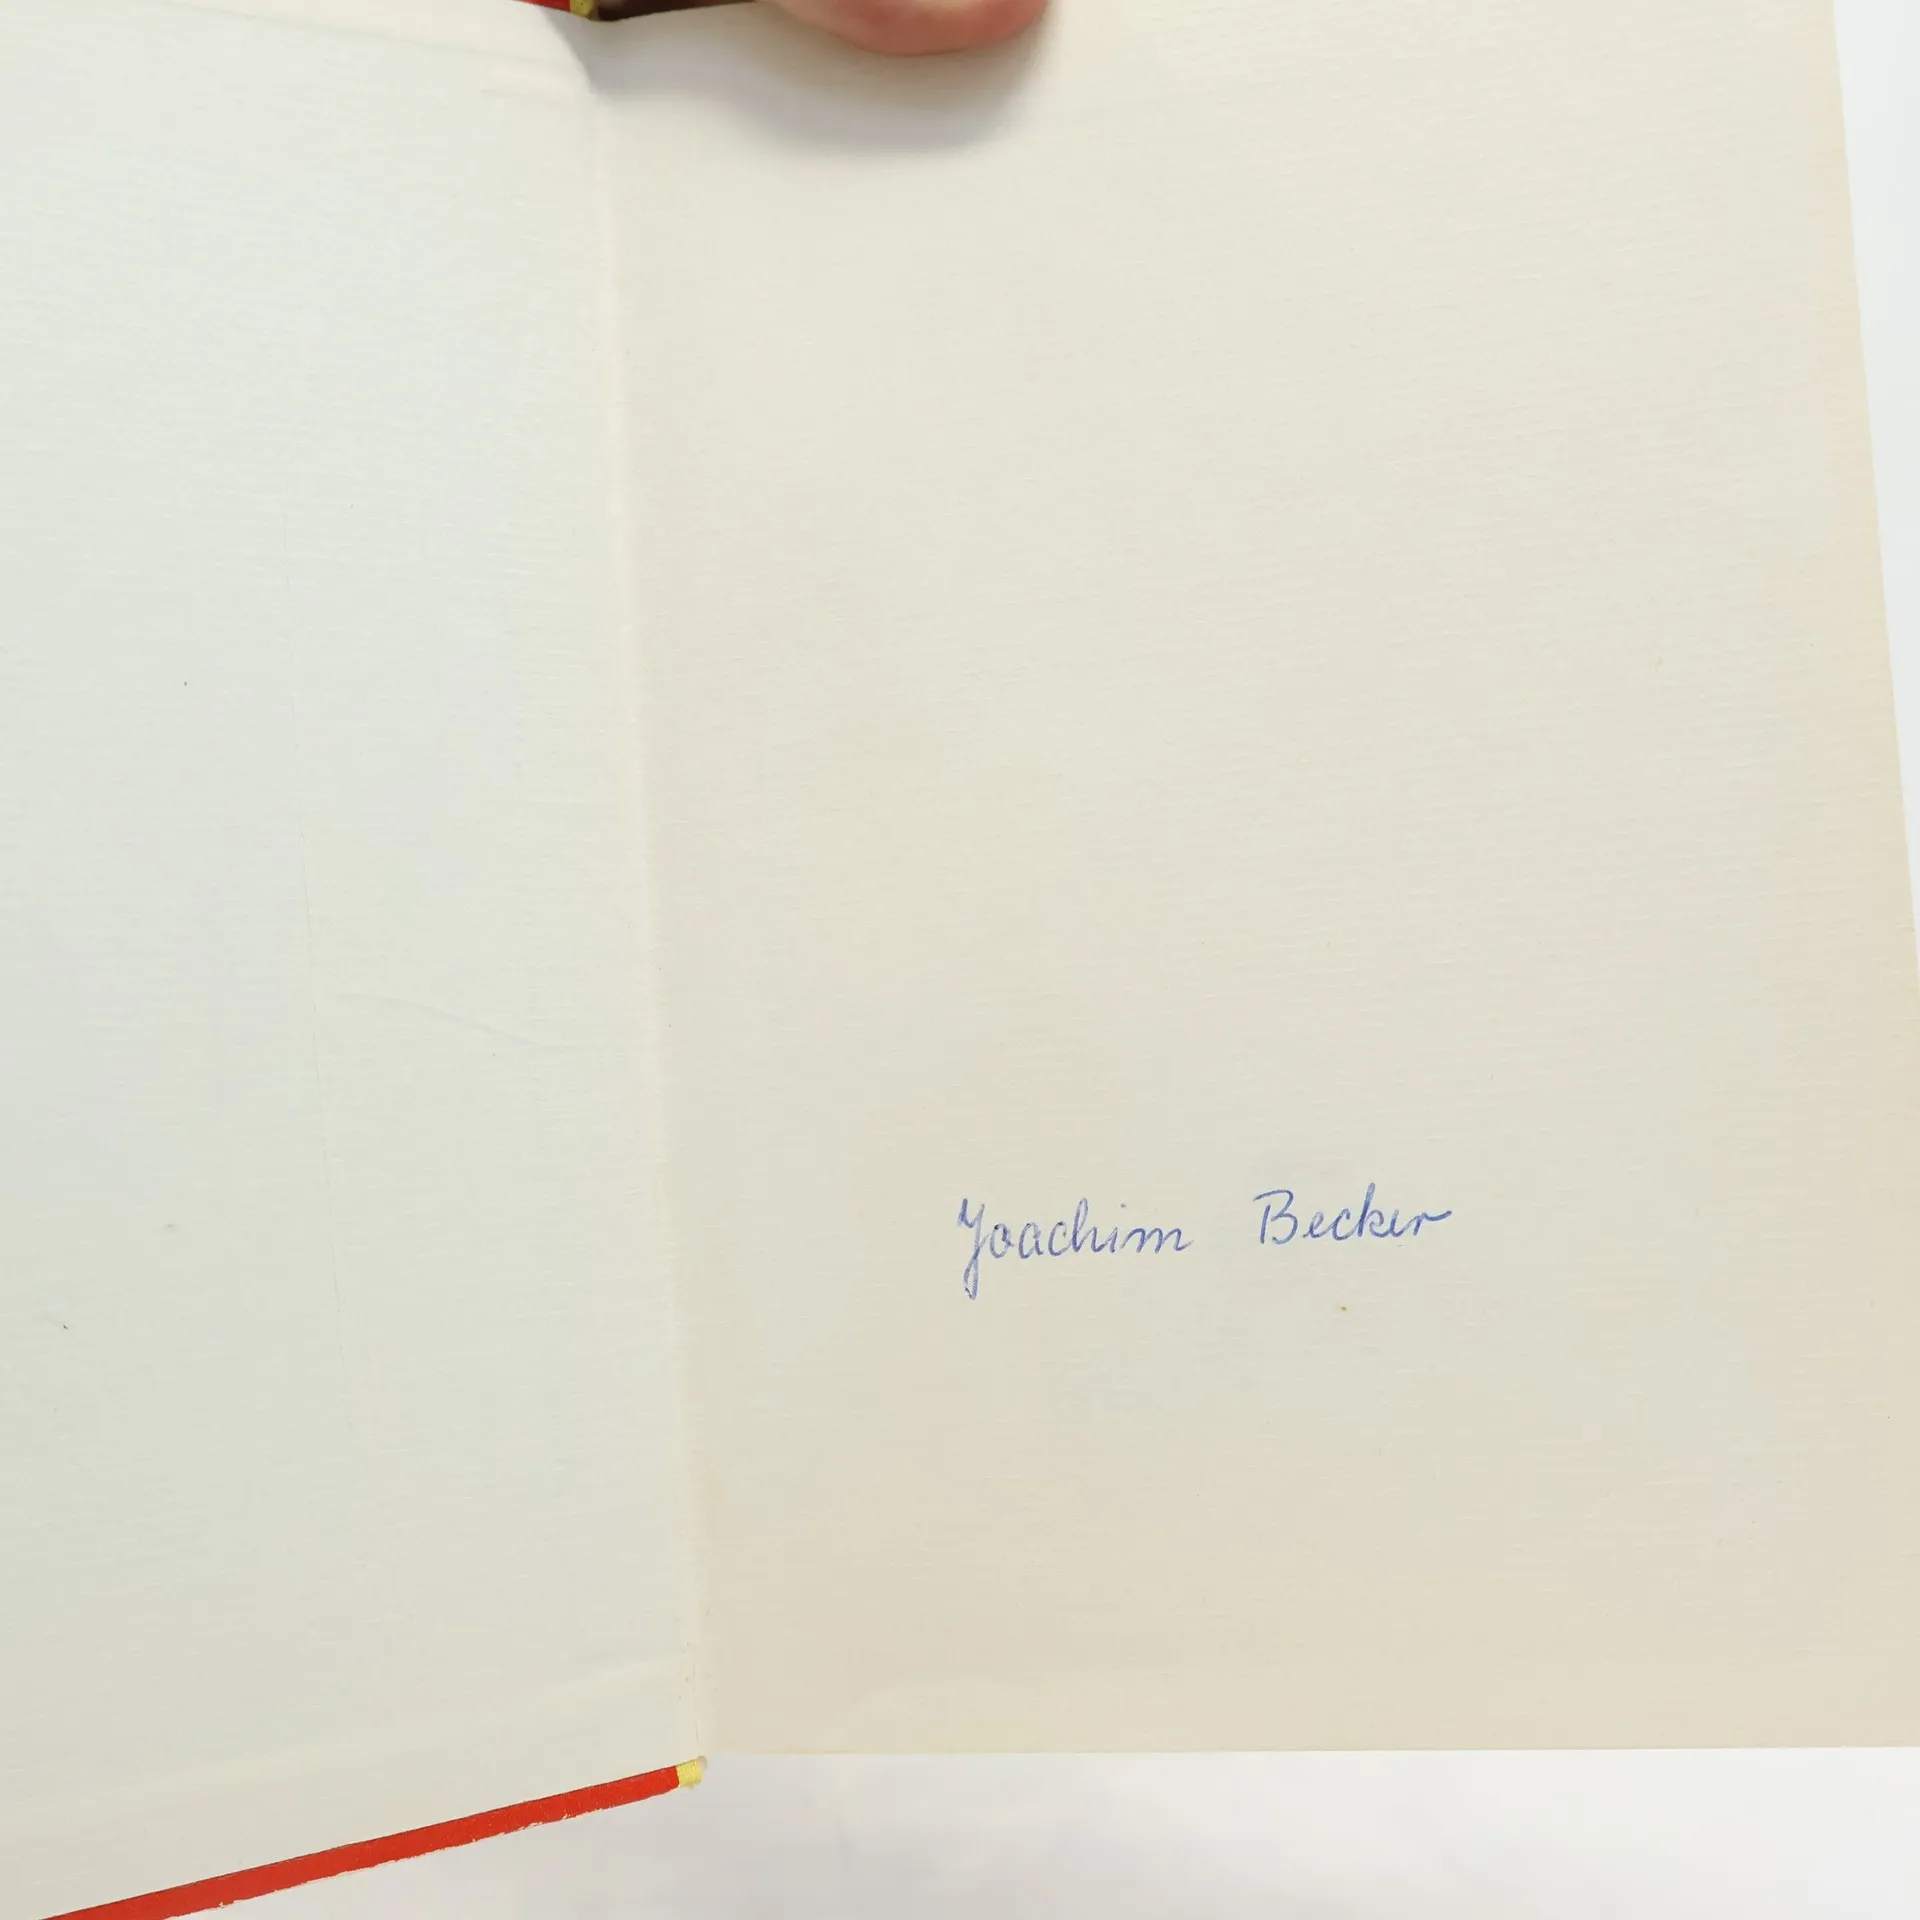 Joachim Becker